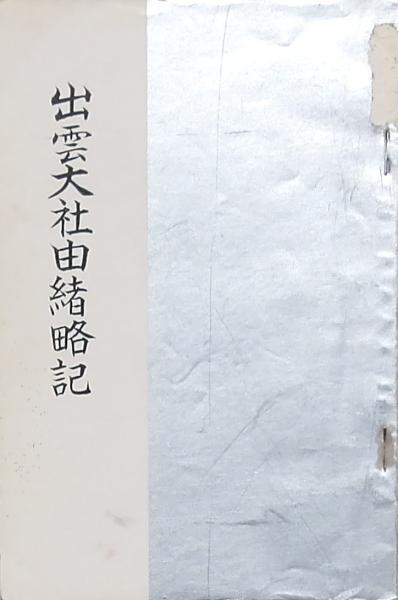 出雲大社由緒略記